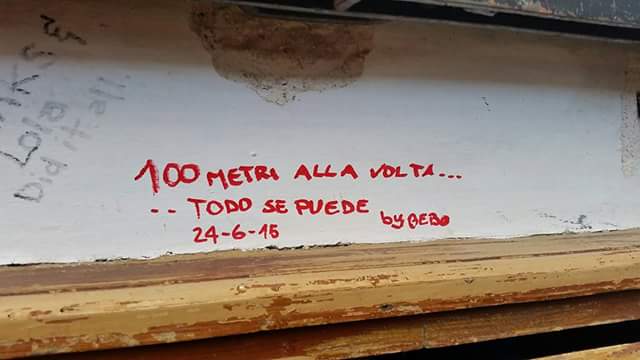 100 METRI ALLA VOLTA...
.. TODO SE PUEDE
24-6-15 by BEBO
Did it all.